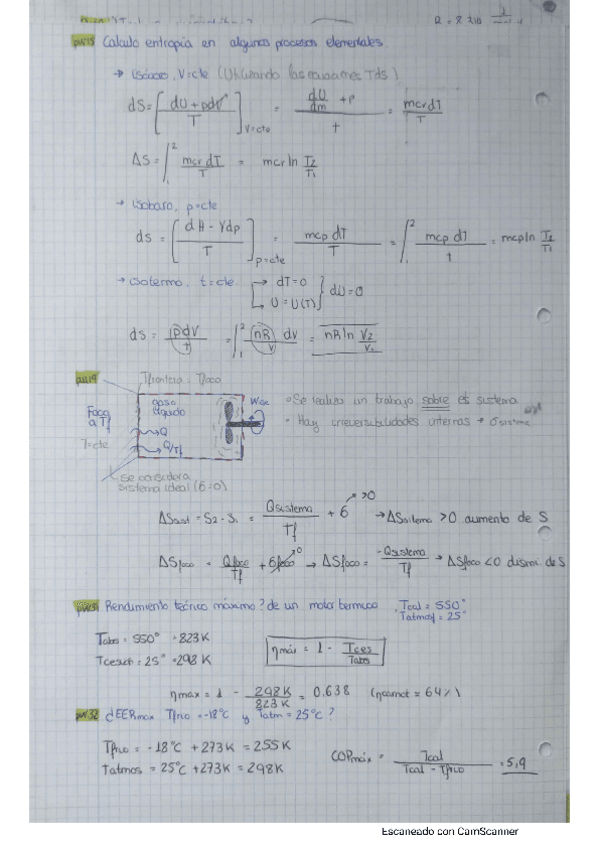 Calculo entropía en algunos procesos elementales.
→ isócoro, V=cte (Utilizando las ecuaciones Tds)
dS = [ dU + pdV / T ]V=cte = = mcvdT / T
ΔS = ∫₁² mcvdT / T = mcv ln T2/T1
→ isobaro, p=cte
ds = [ dH - Vdp / T ]p=cte = mcp dT / T = ∫₁² mcp dT / t = mcpln T2/T1
→ isotermo, t=cte. → dT=0
↳ U=U(T) } dU=0
ds = pdV / t = ∫₁² nR / V dv = nR ln V2/V1
Tfrontera = Tfoco
Foco a Tf
T=cte
gas o líquido
Q
Q/Tf
Se considera sistema ideal (6=0)
• Se realiza un trabajo sobre el sistema
• Hay irreversibilidades internas →
ΔSsist = S2 - S1 = Qsistema / Tf + 6 >0 → ΔSsistema >0 aumento de S
ΔSfoco = Qfoco / Tf + 6foco 0 → ΔSfoco = -Qsistema / Tf → ΔSfoco <0 dismi de S
Rendimiento teórico máximo? de un motor termico. Tcal = 550°
Tatmosf = 25°
Tabs = 550° = 823K
= 25° = 298K
ηmáx = 1 - Tces / Tabs
ηmax = 1 - 298K / 823K = 0.638 (ηcarnot = 64%)
¿EERmax Tfrio = -18°C y Tatm = 25°C?
Tfrio = -18°C + 273K = 255K
Tatmos = 25°C + 273K = 298K
COPmáx = Tcal / Tcal - Tfrio = 5,9
Escaneado con CamScanner